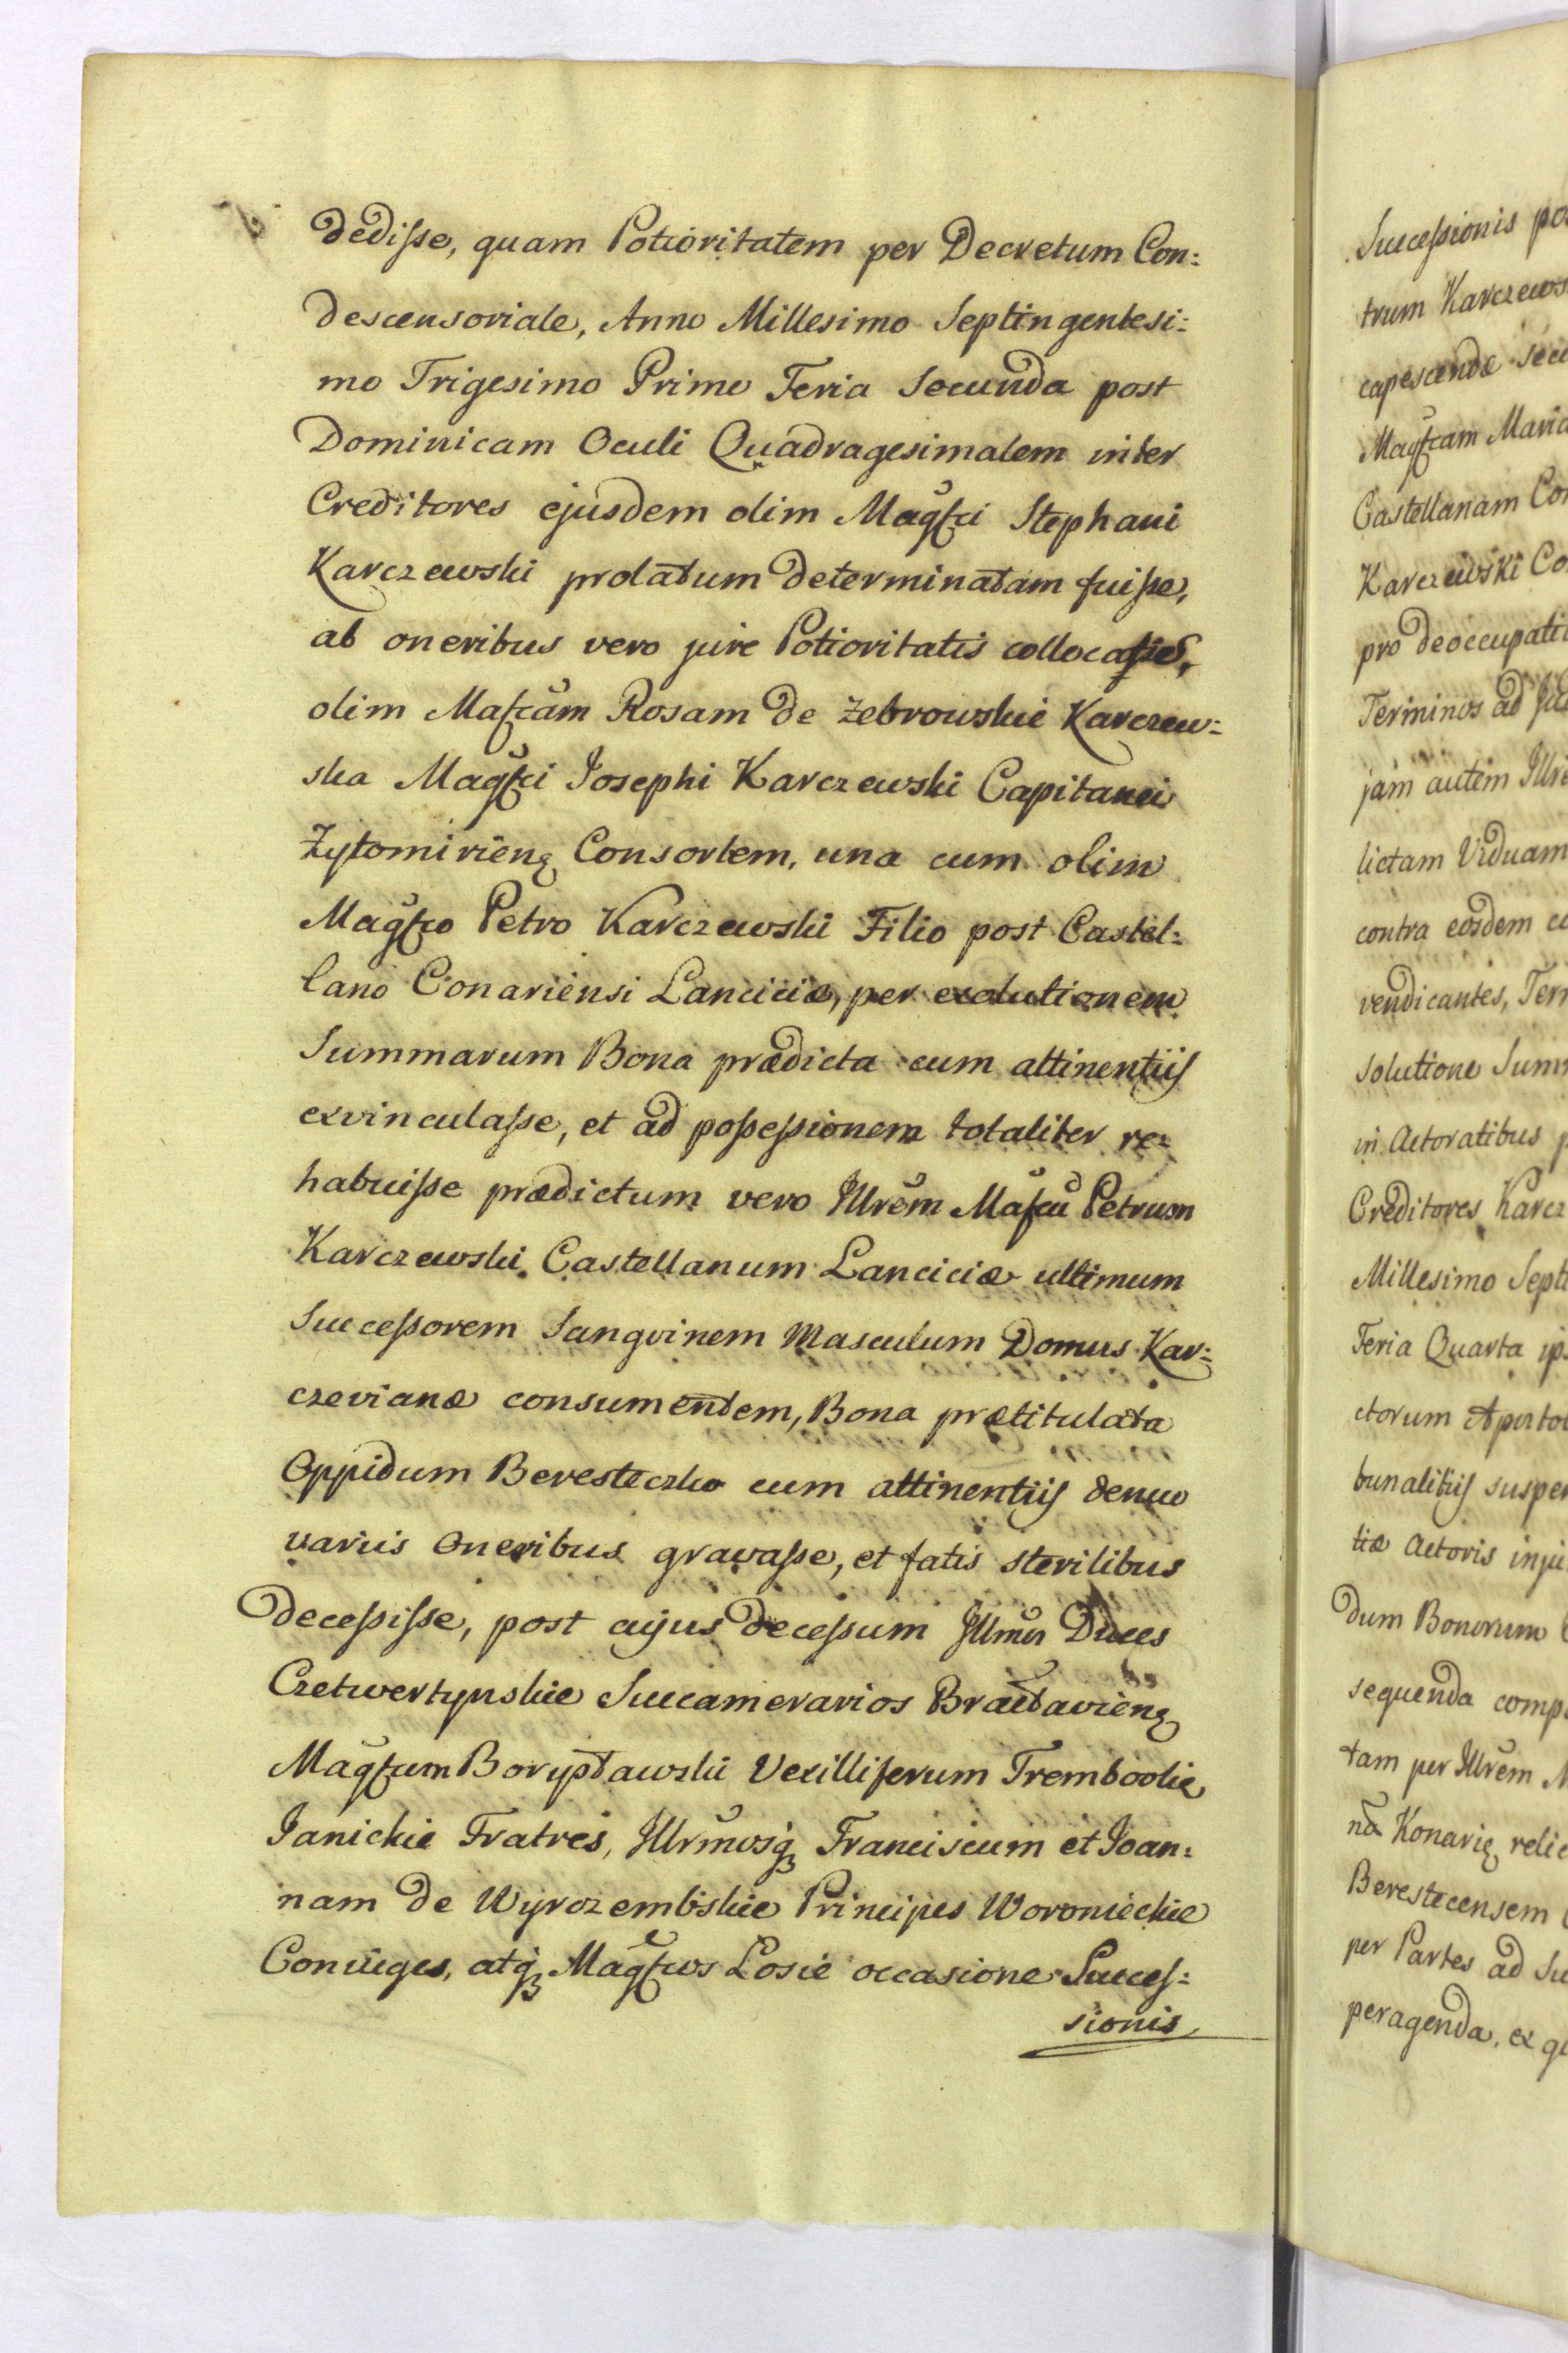 dedisse, quam Potioritatem per Decretum Con:
descensoriale, Anno Millesimo Septingentesi:
mo Trigesimo Primo Feria Secunda post
Dominicam Oculi Quadragesimalem inter
Creditores ejusdem olim Magfci Stephani
Karczewski prolatum determinatam fuisse,
ab oneribus vero jure Potioritatis
olim Mafcam Rosam de Zebrowskie Karczew:
ska Magfci Josephi Karczewski Capitanei
Zytomirien̄q Consortem, una cum olim
Magfco Petro Karczewski Filio post Castel:
lano Conariensi Lanciciæ, per exolutionem
Summarum Bona prædicta cum attinentiis
exvinculasse, et ad possessionem totaliter re:
habuisse prædictum vero Illrem Mafcu Petrum
Karczewski Castellanum Lanciciæ ultimum
Successorem Sangvinem Masculum Domus Kar:
czevianæ consumentem, Bona prætitulata
Oppidum Beresteczko cum attinentiis denuo
variis Oneribus gravasse, et fatis sterilibus
decessisse, post cujus decessum Illmos Duces
Czetwertynskie Succamerarios Bractavienq
Magfcum Boryslawski Vexilliferum Tremboolie
Janickie Fratres, Illrmosq Franciscum et Joan:
nam de Wyrozembskie Principes Woronieckie
Conjuges, atq Magfcos Losie occasione Succes:
sionis
Successionis
trum
capescendæ
Magfcam
Castellanam
Karczewski
pro deoccupati
Terminos ad
jam autem
lictam Viduam
contra eosdem
vendicantes,
solutione
in Actoratibus
Creditores
Millesimo
Feria Quarta
ctorum
bunalitiis
tiæ Actoris
dum Bonorum
sequenda
tam per Illrem
Konarie
Berestecensem
per Partes ad
peragenda, ex